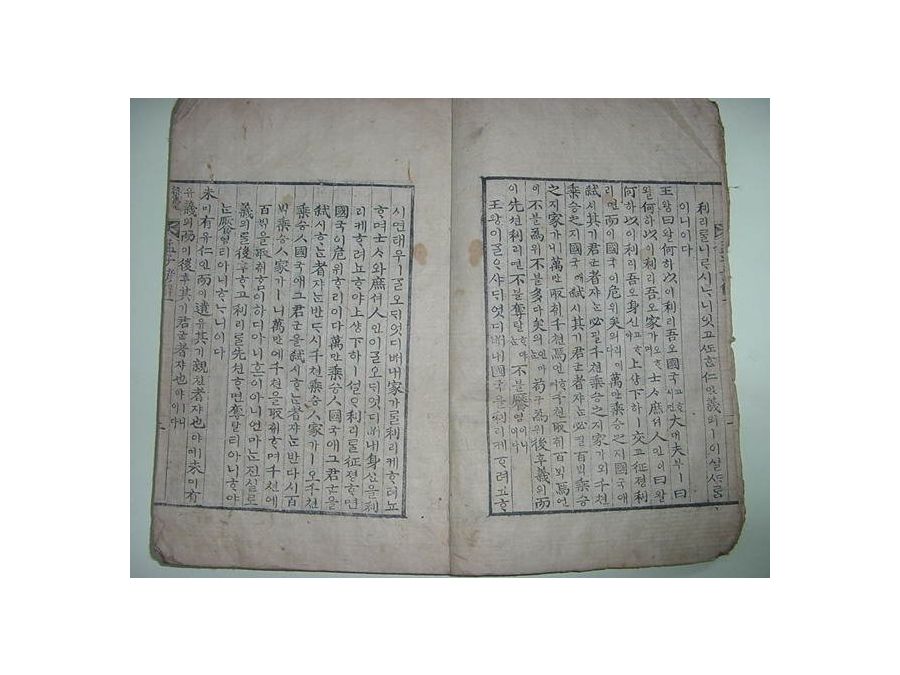 利리ᄅᆞᆯ니ᄅᆞ시ᄂᆞ니잇고ᄯᅩᄒᆞᆫ仁인義의ㅣ이실ᄯᆞᄅᆞᆷ
이니이다
王왕曰왈何하以이利리吾오國국고ᄒᆞ시면大대夫부ㅣ曰
왈何하以이利리吾오家가오ᄒᆞ며士ᄉᆞ庶셔人인이曰왈
何하以이利리吾오身신고ᄒᆞ야上샹下하ㅣ交교征졍利
리면而이國국이危위矣의리이다萬만乘승之지國국애
弑시其기君군者쟈ᄂᆞᆫ必필千쳔乘승之지家가ㅣ오千쳔
乘승之지國국애弑시其기君군者쟈ᄂᆞᆫ必필百ᄇᆡᆨ乘승
之지家가ㅣ니萬만取ᄎᆔ千쳔焉언ᄒᆞ며千쳔取ᄎᆔ百ᄇᆡᆨ焉언
이不블爲위不블多다矣의언마ᄂᆞᆫ苟구爲위後후義의而
이先션利리면不블奪탈ᄒᆞ야ᄂᆞᆫ不블饜염이니이다
王왕이ᄀᆞᆯᄋᆞ샤ᄃᆡ엇디ᄡᅥ내國국을利리케ᄒᆞ려뇨ᄒᆞ
시면태우ㅣᄀᆞᆯ오ᄃᆡ엇디ᄡᅥ내家가ᄅᆞᆯ利리케ᄒᆞ려뇨
ᄒᆞ며士ᄉᆞ와庶셔人인이ᄀᆞᆯ오ᄃᆡ엇디ᄡᅥ내身신을利
리케ᄒᆞ려뇨ᄒᆞ야上샹下하ㅣ서ᄅᆞ利리ᄅᆞᆯ征졍ᄒᆞ면
國국이危위ᄒᆞ리이다萬만乘승人國국애그君군을
弑시ᄒᆞᄂᆞᆫ者쟈ᄂᆞᆫ반ᄃᆞ시千쳔乘승人家가ㅣ오千쳔
乘승人國국애그君군을弑시ᄒᆞᄂᆞᆫ者쟈ᄂᆞᆫ반다시百
ᄇᆡᆨ乘승人家가ㅣ니萬만에千쳔을取ᄎᆔᄒᆞ며千쳔에
百ᄇᆡᆨ을取ᄎᆔ홈이하디아니홈이아니언마ᄂᆞᆫ진실로
義의ᄅᆞᆯ後후ᄒᆞ고利리ᄅᆞᆯ先션ᄒᆞ면奪탈티아니ᄒᆞ야
ᄂᆞᆫ饜염티아니ᄒᆞᄂᆞ니이다
未미有유仁인而이遺유其기親친者쟈也야ㅣ며未미有
유義의而이後후其기君군者쟈也야ㅣ니이다